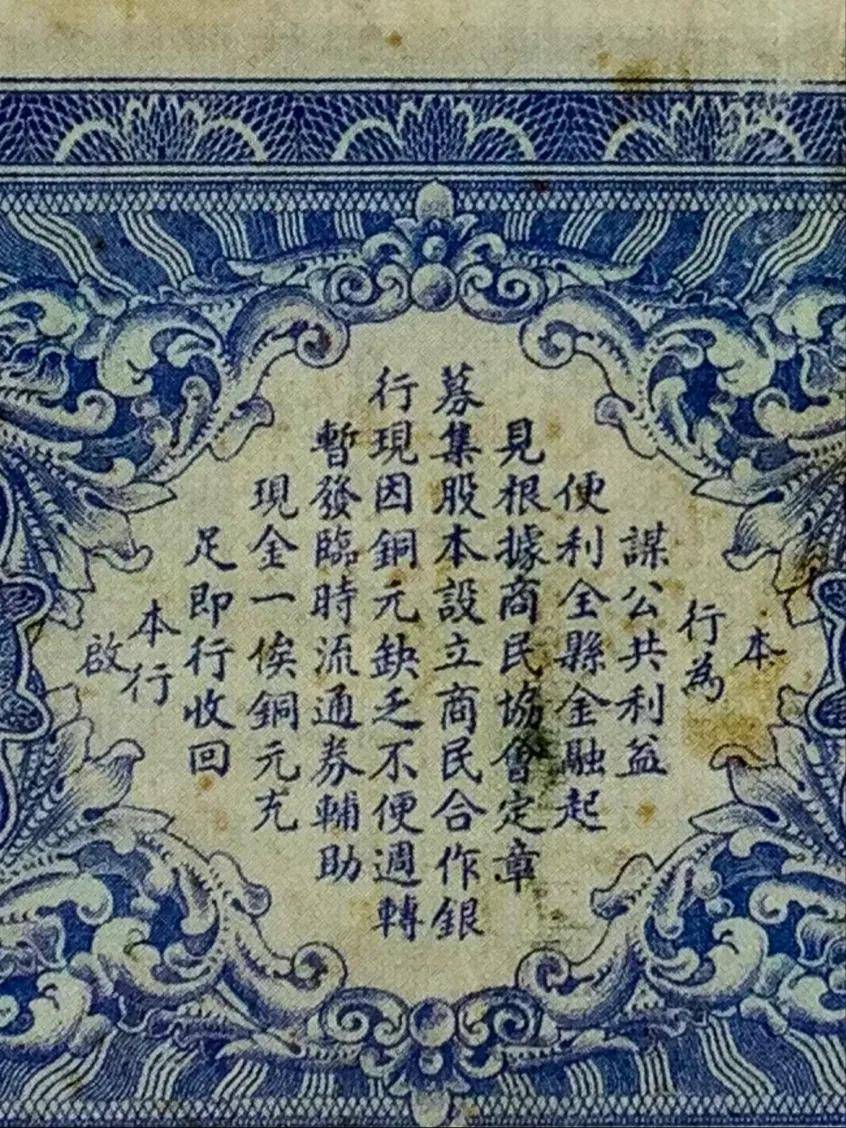 本
行為
謀公共利益
便利全縣金融起
見根據商民協會定章
募集股本設立商民合作銀
行現因銅元缺乏不便週轉
暫發臨時流通券輔助
現金一俟銅元充
足即行收回
本行
啟